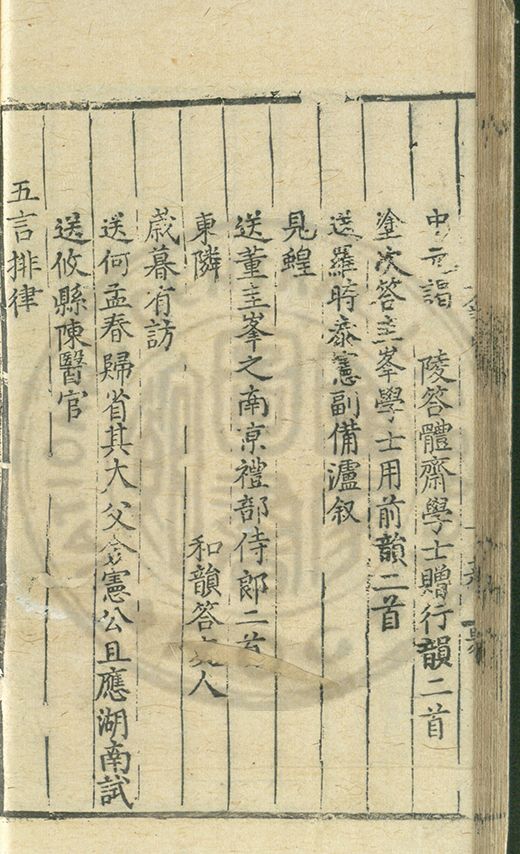 中元謁　陵答體齋學士贈行韻二首
塗次答圭峯學士用前韻二首
送羅時泰憲副備瀘叙
見蝗
送董圭峯之南京禮部侍郎二首
東隣　和韻答人
歲暮有訪
送何孟春歸省其大父僉憲公且應湖南試
送攸縣陳醫官
五言排律